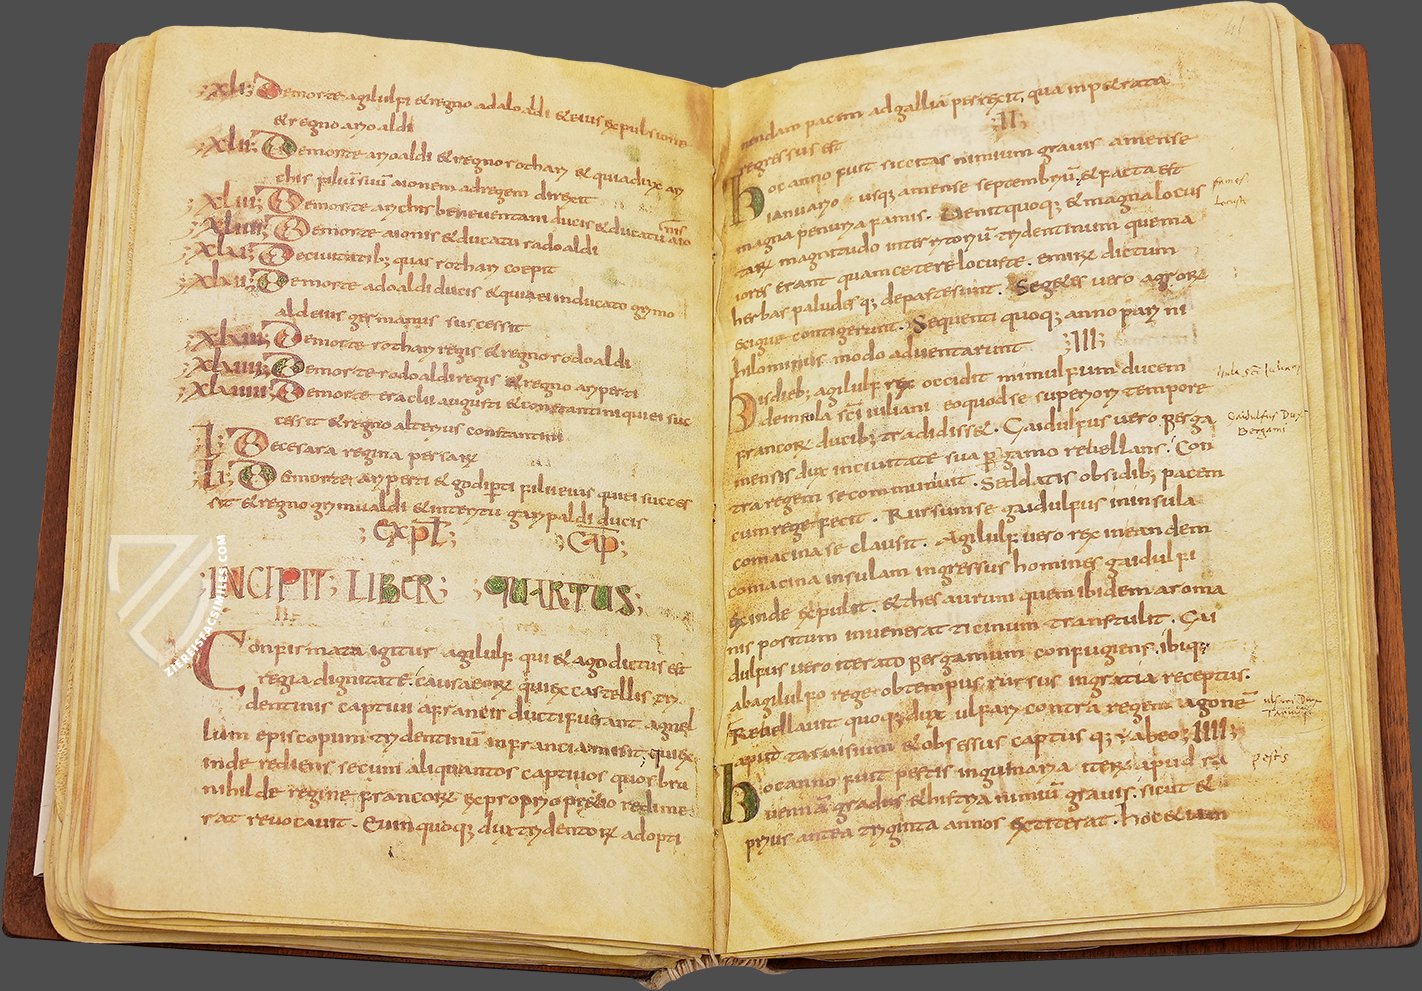 ;XLI; De morte agilulfi & regno adaloaldi & eius expulsione
& regno arioaldi
;XLII; De morte arioaldi & regno rothari & quia dux ari
chis filiū suū aionem ad regem direxit
;XLIII; De morte arichis beneventani ducis & ducatu aio
nis
;XLIIII; De morte aionis & ducatu radoaldi
;XLV; De civitatib; quas rothari coepit
;XLVI; De morte adoaldi ducis & quia ei in ducato grimo
ald eius germanus successit
;XLVII; De morte rothari regis & regno rodoaldi
;XLVIII; De morte rodoaldi regis & regno ariperti
;XLVIIII; De morte eraclii augusti & constantini qui ei suc
cessit & regno alterius constantini
;L; De cesara regina persarum
;LI; De morte ariperti & godiperti filii eius qui ei succes
sit & regno grimualdi & interitu garipaldi ducis
; EXPL; ; CAP;
;INCIPIT; LIBER; ;QUARTUS;
Confirmata igitur agilulf qui & ago dictus est
regia dignitate. causa eorum qui ex castellis tri
dentinis captivi a francis ducti fuerant agnel
lum episcopum tridentinū in francia misit, qui ex
inde rediens secum aliquantos captivos quos bru
nihilde regine francorum ex proprio pretio redime
rat revocavit. Euin quoq; dux tridentorum ad opti
41
nendam pacem ad galliā perrexit, qua inpetrata
;II;
regressus est
Hoc anno fuit siccitas nimium gravis a mense
ianuario usq; a mense septembriū, & facta est
magna penuria famis. Venit quoq; & magna locus
tarum magnitudo in territoriū tridentinum que ma
iores erant quam cetere locuste. & mirum dictum
herbas paludes q; depastesunt. Segetes vero agrorum
exigue contigerunt. Sequenti quoq; anno pari ni
hilominus modo adventarunt ;III;
His dieb; agilulf rex occidit mimulfum ducem
de insula scī iuliani eo quod se superiori tempore
francorum ducib; tradidisset. Gaidulfus vero berga
mensis dux in civitate sua pergamo rebellans. Con
tra regem se communivit. Sed datis obsidib; pacem
cum rege fecit. Rursum se gaidulfus in insula
comacina se clausit. Agilulf vero rex in eandem
comacina insulam ingressus homines gaidulfi
exinde expulit. & thesaurum quem ibidem a roma
nis positum invenerat ticinum transtulit. Gai
dulfus vero iterato bergamum confugiens, ibiq;
ab agilulfo rege obtempus rursus in gratia receptus.
Rebellavit quoq; dux ulfari contra regem iagonē
aput tarvisium & obsessus captus q; ; ab eo ;IIII;
Hoc anno fuit pestis inguinaria iterū apud ra
vennā gradus & histria nimiū gravis. sicut &
prius antea triginta annos extiterat. Hoc etiam
fames
Locuste
Gaidulfus Dux
Bergami
ulfari Dux
Tarvisii
pestis
ZIEREISFACSIMILES.COM